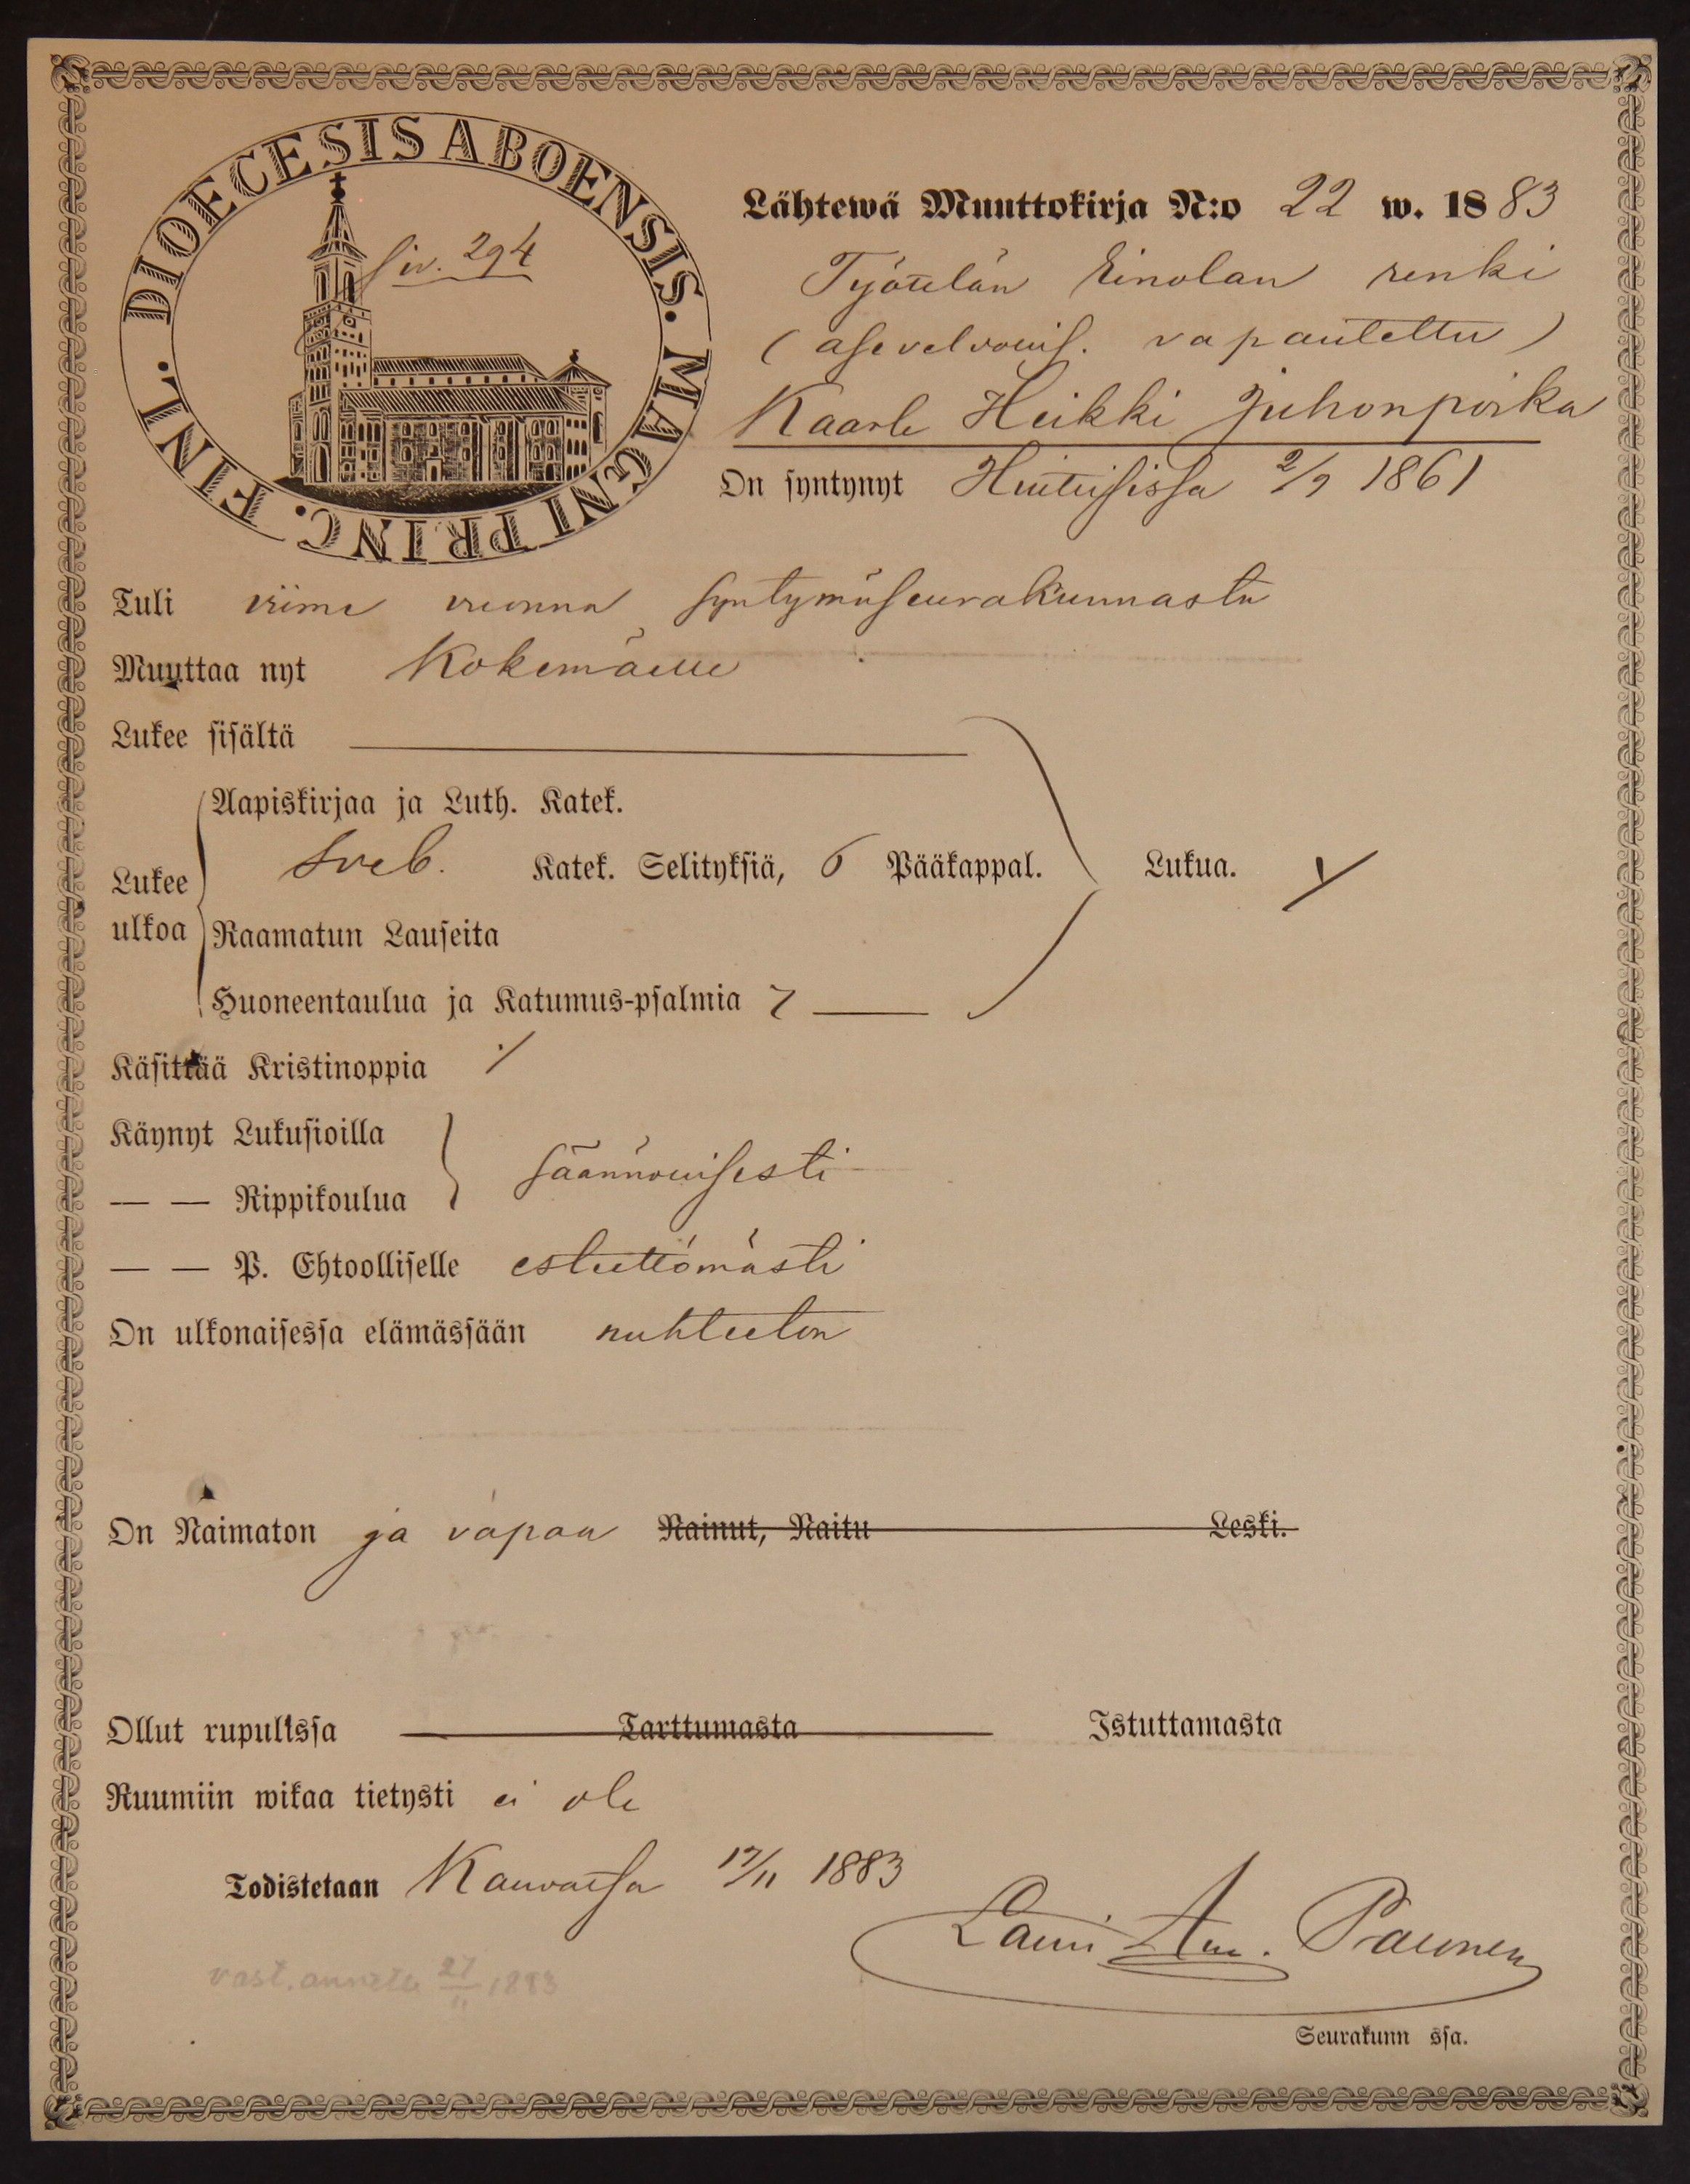 DIOECESIS ABOENSIS. MAGNI PRINC. FINL.
Siv. 294
Lähtewä Muuttokirja N:o 22 w. 1883
Työtilän Einolan renki
(asevelvollis. vapautettu)
Kaarle Heikki Juhonpoika
On syntynyt Huittisissa 2/9 1861
Tuli viime vuonna syntymäseurakunnasta
Muuttaa nyt Kokemäelle
Lukee sisältä
Aapiskirjaa ja Luth. Katek.
Lukee ulkoa
Sveb. Katek. Selityksiä, 6 Pääkappal. Lukua.
Raamatun Lauseita
Huoneentaulua ja Katumus-psalmia 7
Käsittää Kristinoppia
Käynyt Lukusioilla
säännöllisesti
— — Rippikoulua
— — P. Ehtoolliselle esteettömästi
On ulkonaisessa elämässään nuhteeton
On Naimaton ja vapaa Nainut, Naitu Leski.
Ollut rupulissa Tarttumasta Istuttamasta
Ruumiin wikaa tietysti ei ole
Todistetaan Kauvatsa 17/11 1883
Lauri Paunen
vast. annettu 21/11 1883
Seurakunn ssa.